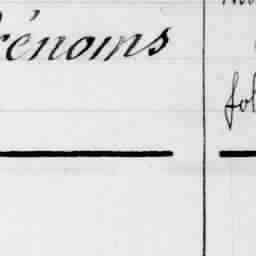 Prénoms
fol